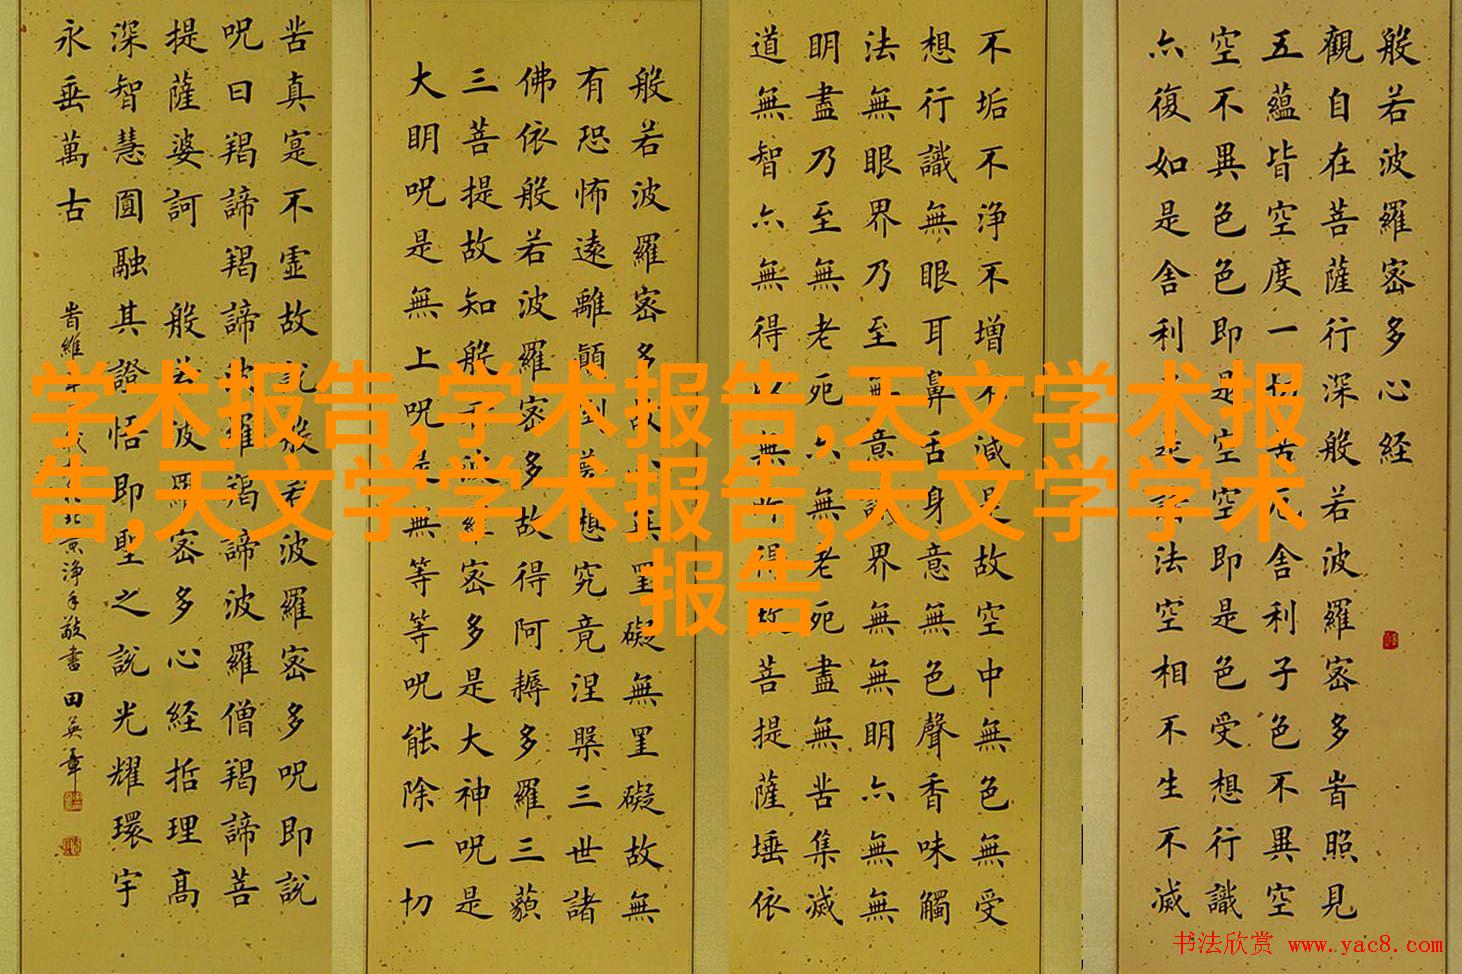 学术报告,学术报告,天文学术报
告,天文学学术报告,天文学学术
报告
般若波羅密多心経
觀自在菩薩行深般若波羅密多峕照見
五蘊皆空度一切苦厄舍利子色不異空
空不異色色即是空空即是色受想行識
亦復如是舍利子是諸法空相不生不滅
不垢不浄不增不減是故空中無色無受
想行識無眼耳鼻舌身意無色聲香味觸
法無眼界乃至無意識界無無明亦無無
明盡乃至無老死亦無老死盡無苦集滅
道無智亦無得以無所得故菩提薩埵依
般若波羅密多故心無罣礙無罣礙故無
有恐怖遠離顛倒夢想究竟涅槃三世諸
佛依般若波羅密多故得阿耨多羅三藐
三菩提故知般若波羅密多是大神呪是
大明呪是無上呪是無等等呪能除一切
苦真寔不虛故說般若波羅密多呪即說
呪曰羯諦羯諦波羅羯諦波羅僧羯諦菩
提薩婆訶 般若波羅密多心経括理高
深智慧圓融其證悟即聖之說光耀環宇
永垂萬古
峕維 歲 北京淨手敬書 田英章
书法欣赏 www.yac8.com